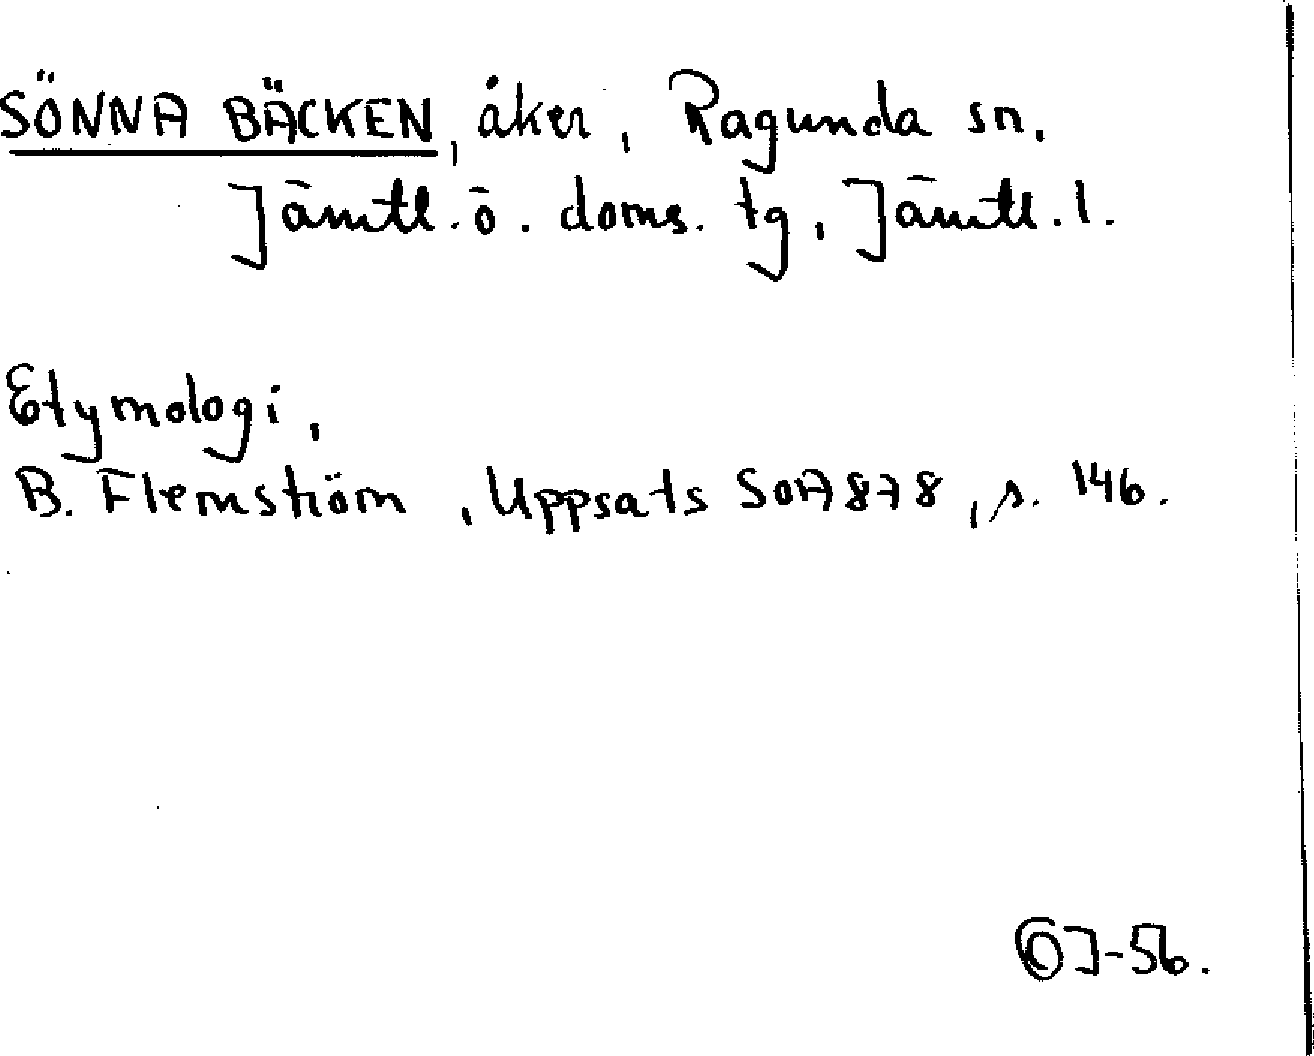 SÖNNA BÄCKEN, åker, Ragunda sn.
Jämtl. ö. doms. tg, Jämtl. l.
Etymologi,
B. Flemström, Uppsats SOA 878, s. 146.
GJ-56.